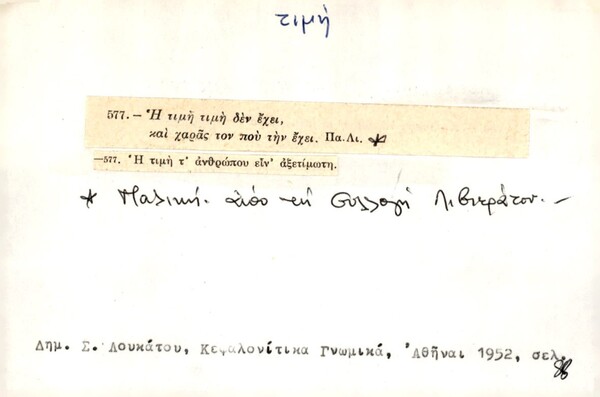 τιμή
577.— Ἡ τιμὴ τιμὴ δὲν ἔχει,
καὶ χαρᾶς τον ποὺ τὴν ἔχει. Πα.Λι. *
—577. Ἡ τιμὴ τ' ἀνθρώπου εἶν' ἀξετίμωτη.
* Παλική. Ἀπὸ τὴ Συλλογὴ Λιβιεράτου. —
Δημ. Σ. Λουκάτου, Κεφαλονίτικα Γνωμικά, Ἀθῆναι 1952, σελ.